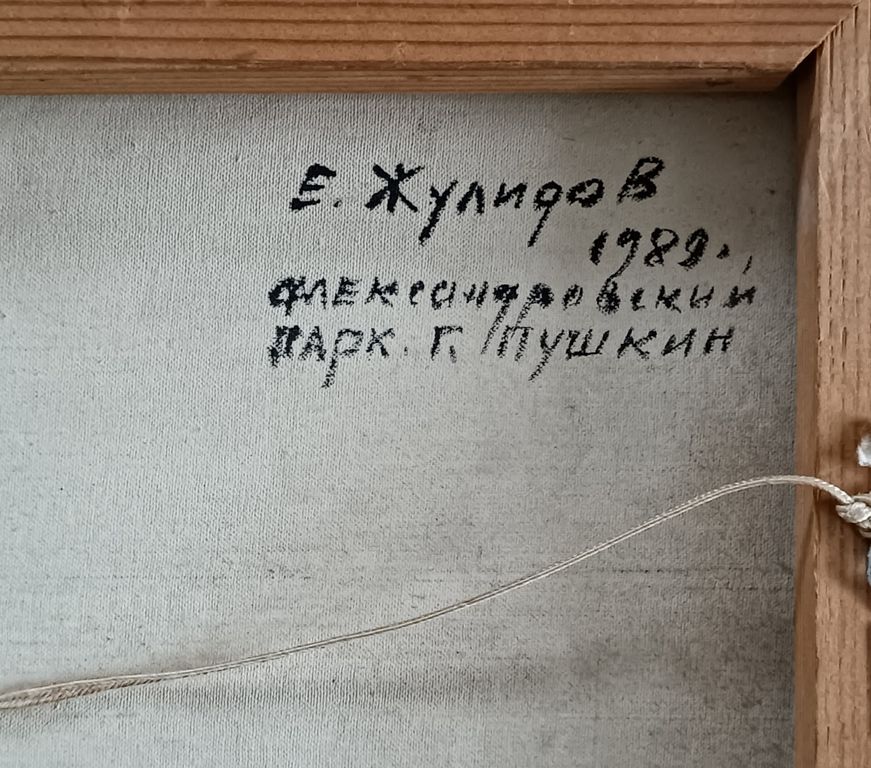 Е. Жулидов
1989.,
Александровский
парк. г. Пушкин